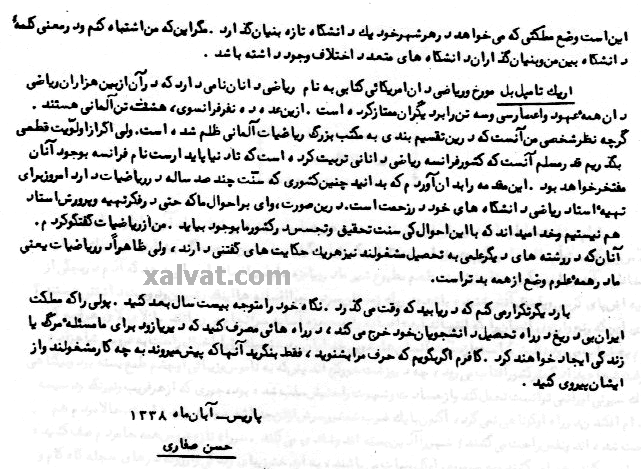 این است وضع مملکتی که می خواهد در هر شهر خود یك دانشگاه تازه بنیان گذارد . مگر این که من اشتباه کنم ودر معنی کلمهٔ
دانشگاه بین من وبنیان گذاران دانشگاه های متعدد اختلاف وجود داشته باشد .
اریك تامپل بل مورخ وریاضی دان امریکائی کتابی به نام ریاضی دانان نامی دارد که درآن از بین هزاران ریاضی
دان همه عهود واعصار سی وسه تن را بر دیگران ممتاز کرده است . ازین عده ده نفر فرانسوی، هشت تن آلمانی هستند .
گرچه نظر شخصی من آنست که درین تقسیم بندی به مکتب بزرگ ریاضیات آلمانی ظلم شده است. ولی اگر از اولویت قطعی
بگذریم قدر مسلم آنست که کشور فرانسه ریاضی دانانی تربیت کرده است که تا دنیا پایدارست نام فرانسه بوجود آنان
مفتخر خواهد بود . این مقدمه را بدان آوردم که بدانید چنین کشوری که سنّت چند صد ساله در ریاضیات دارد امروز برای
تهیهٔ استاد ریاضی دانشگاه های خود در زحمت است. درین صورت، وای بر احوال ما که حتی در فکر تهیه وپرورش استاد
هم نیستیم وخدا میداند که با این احوال کی سنت تحقیق وتجسس در کشور ما بوجود بیاید . من از ریاضیات گفتگو کردم .
آنان که در رشته های دیگر علمی به تحصیل مشغولند نیز هر یك حکایت های گفتنی دارند ، ولی ظاهراً در ریاضیات یعنی
مادر همهٔ علوم وضع از همه بدتر است.
xalvat.com
بار دیگر تکرار می کنم که دریابید که وقت می گذرد . نگاه خود را متوجه بیست سال بعد کنید . پولی را که مملکت
ایران بی دریغ در راه تحصیل دانشجویان خود خرج می کند ، در راه هائی مصرف کنید که دیر یا زود برای ما مسئلهٔ مرگ یا
زندگی ایجاد خواهند کرد . کافرم اگر بگویم که حرف مرا بشنوید ، فقط بنگرید آنها که پیش میروند به چه کار مشغولند واز
ایشان پیروی کنید .
پاریس ـ آبان ماه ۱۳۳۸
حسن صفاری